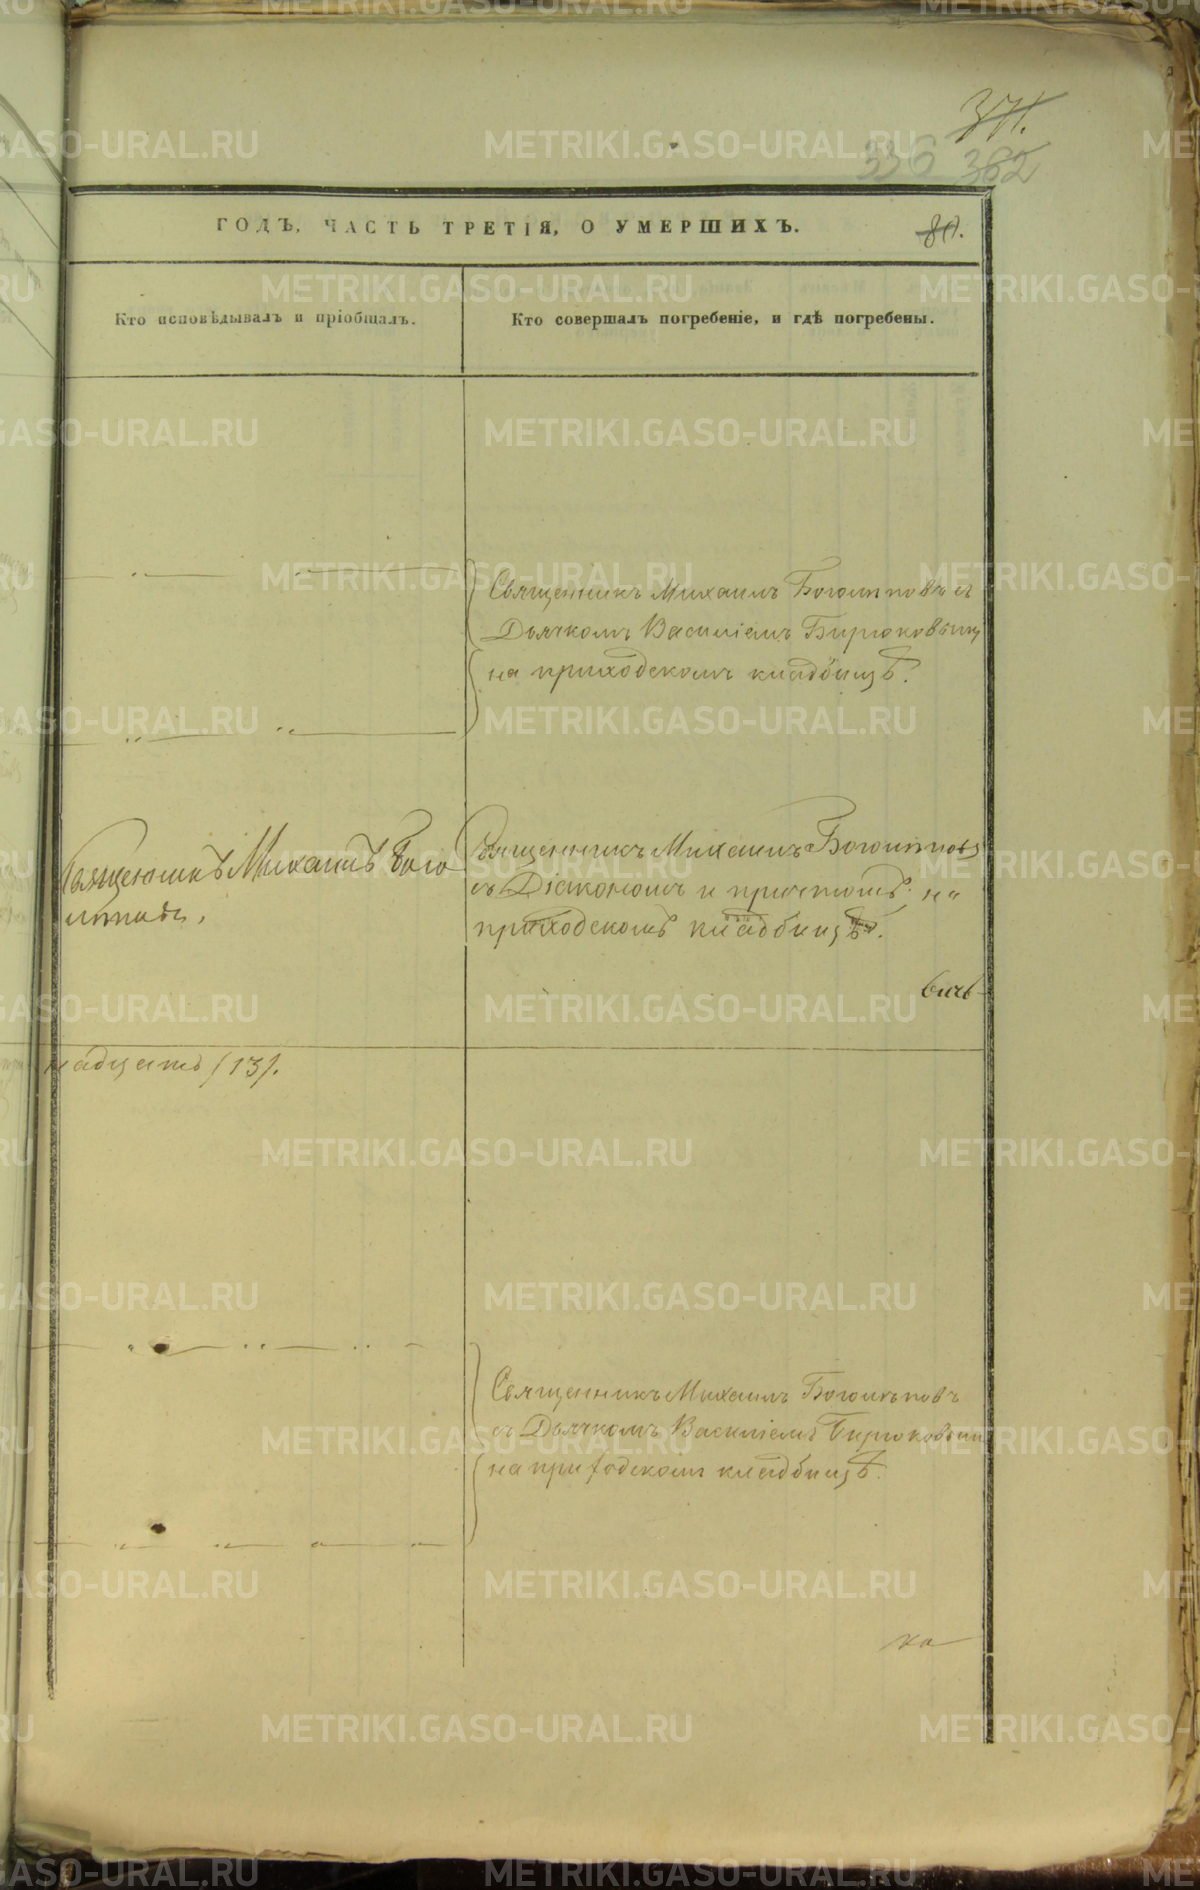 371.
336 382
ГОДЪ, ЧАСТЬ ТРЕТІЯ, О УМЕРШИХЪ.
80.
Кто исповѣдывалъ и пріобщалъ.
Кто совершалъ погребеніе, и гдѣ погребены.
Священникъ Михаилъ Боголѣповъ съ
Дьячкомъ Василіемъ Бирюковымъ
на приходскомъ кладбищѣ.
Священникъ Михаилъ Бого
лѣповъ.
Священникъ Михаилъ Боголѣповъ
съ Діакономъ и причтомъ, на
приходскомъ кладбищѣ.
надцать (13).
Священникъ Михаилъ Боголѣповъ
съ Дьячкомъ Василіемъ Бирюковым
на приходском кладбищѣ.
на
METRIKI.GASO-URAL.RU